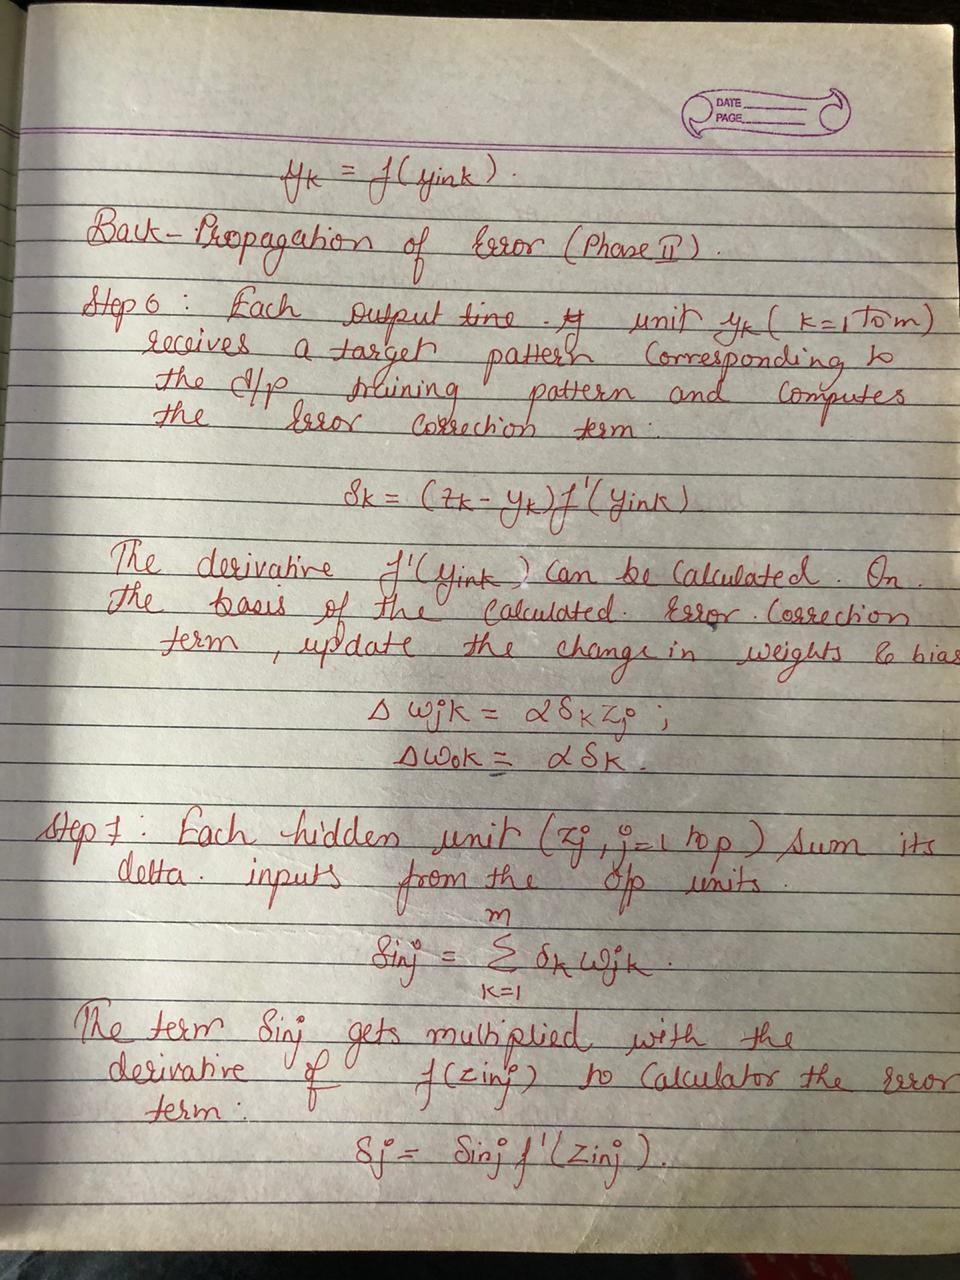 DATE
PAGE
yk = f(yink).
Back-Propagation of Error (Phase II).
Step 6 : Each output unit yk ( k=1 to m)
receives a target pattern corresponding to
the i/p training pattern and computes
the error correction term:
δk = (tk - yk) f'(yink)
The derivative f'(yink) can be calculated. On
the basis of the calculated. Error. Correction
term, update the change in weights & bias
Δ wjk = αδk zj ;
Δwok = αδk.
Step 7 : Each hidden unit (zj, j=1 to p) sum its
delta. inputs from the o/p units.
δinj = m∑k=1 δk wjk.
The term δinj gets multiplied with the
derivative of f(zinj) to calculator the error
term:
δj = δinj f'(zinj).